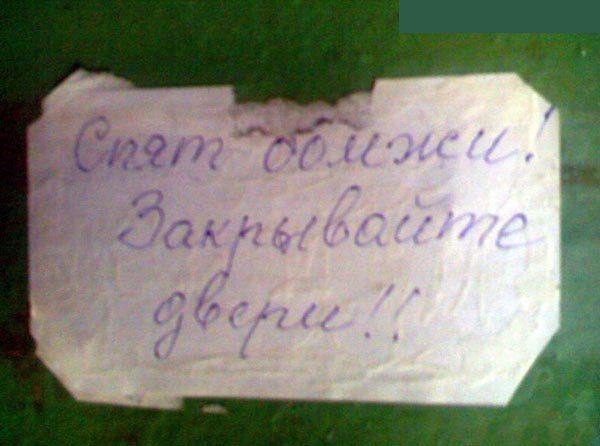 Спят бомжи!
Закрывайте
двери!!